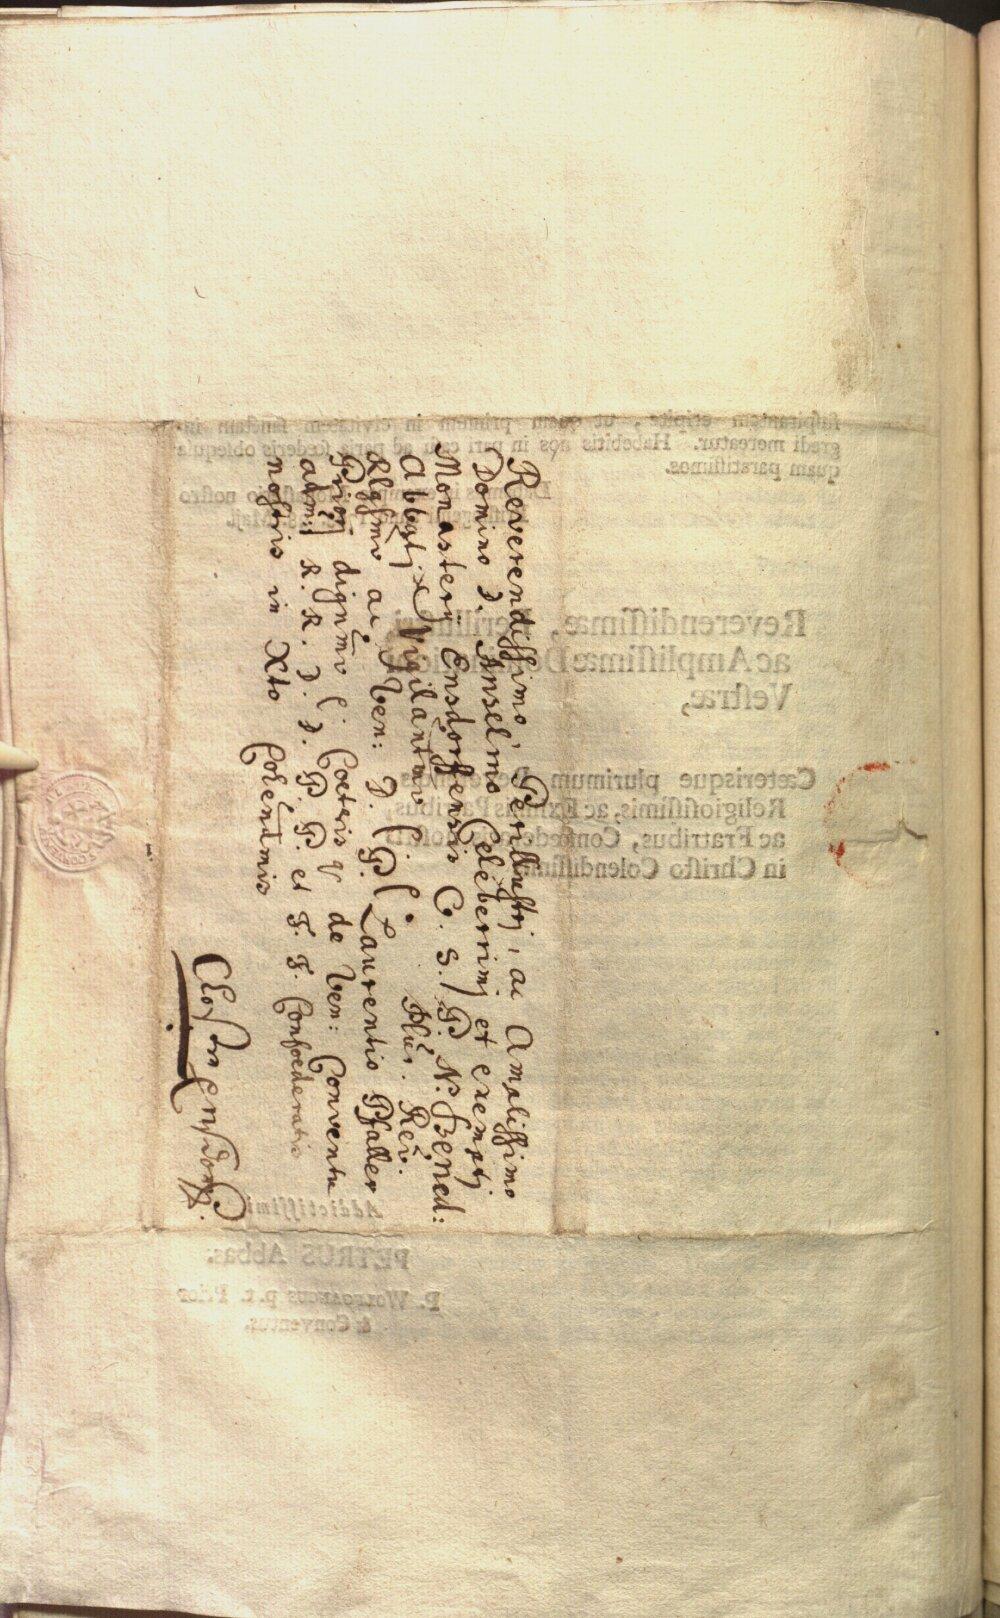 Reverendissimo, Perillustrj, ac Amplissimo
Domino D. Anselmo Celeberrimj et exemptj
Monasterij Ensdorffensis O. S. P. N. Bened:
Abbatj Vigilantmo Plur. Rev.
Rlgsmo ac Ven: D. P. Laurentio Pfaller
Priorj dignmo Coetrisq de Ven: Conventu
adm: R. R. D. D. P. P. et F. F. Confoederatis
nostris in Xto Colendmis
Closter Ensdorff.
suspirantem eripite, ut quam primum in civitatem sanctam in-
gradi mereatur. Habebitis nos in pari casu ad paria fœderis obsequia
quam paratissimos.
Reverendissimæ, Perillustri,
ac Amplissimæ
Vestræ,
Cæterisque plurimum
Religiosissimis, ac Eximiis Patribus,
ac Fratribus, Confœderatis nostris
in Christo Colendissimis
Addictissimi
PETRUS Abbas.
P. WOLFGANGUS p. t. Prior
& Conventus.